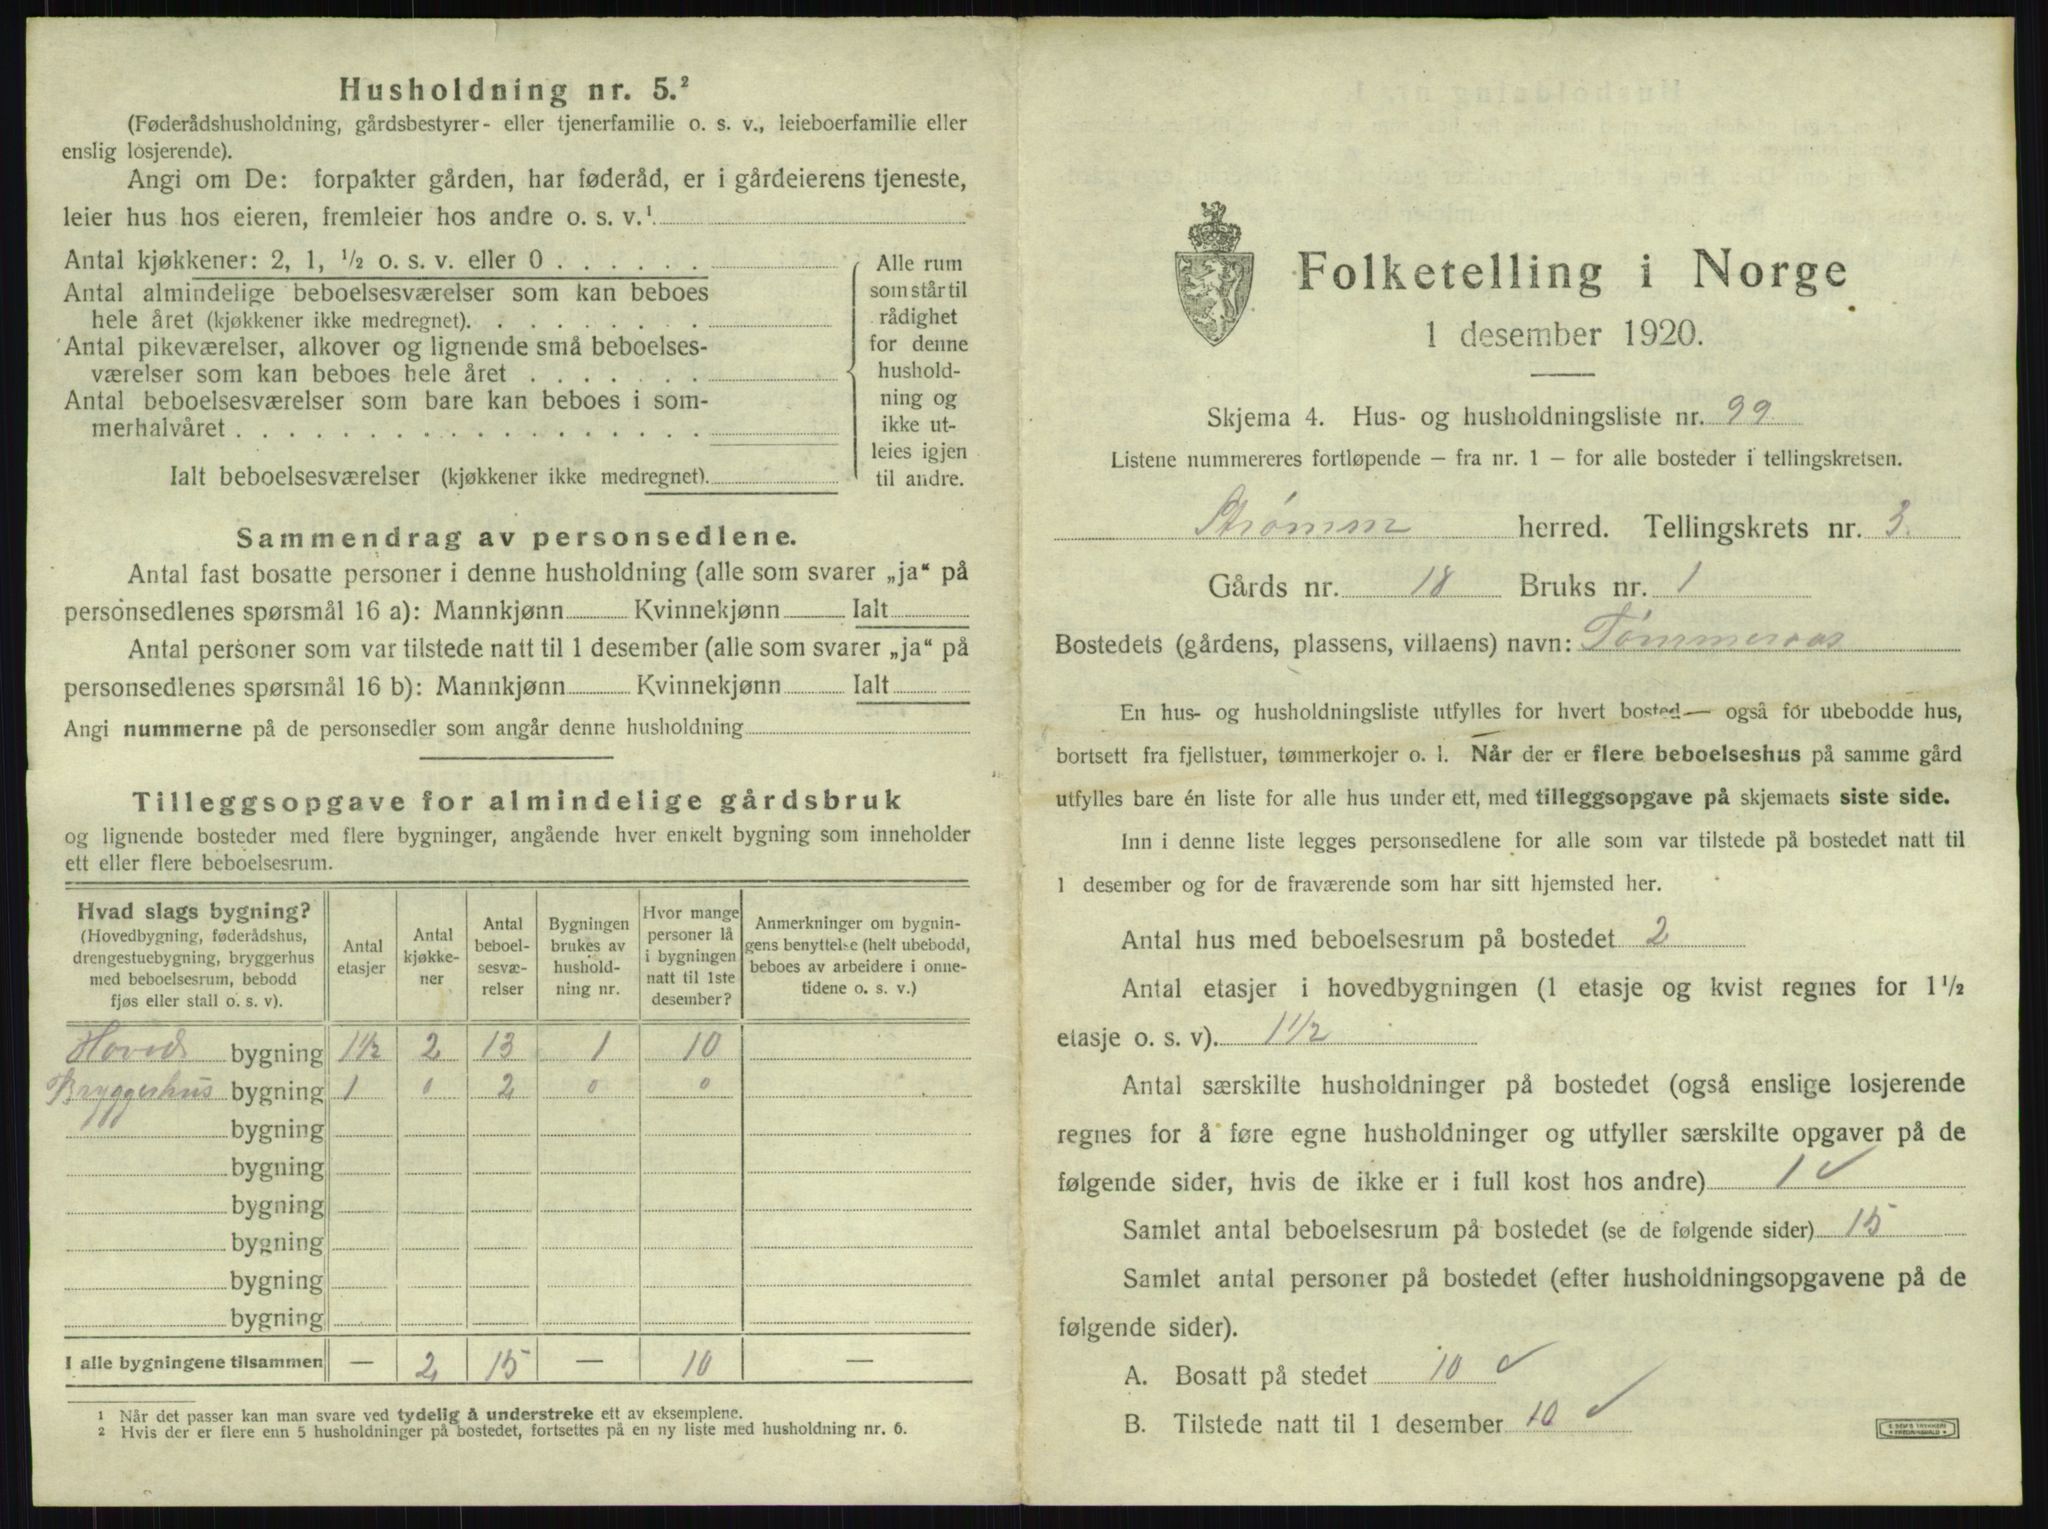 Husholdning nr. 5.²
(Føderådshusholdning, gårdsbestyrer- eller tjenerfamilie o. s. v., leieboerfamilie eller
enslig losjerende).
Angi om De: forpakter gården, har føderåd, er i gårdeierens tjeneste,
leier hus hos eieren, fremleier hos andre o. s. v.¹
Antal kjøkkener: 2, 1, ½ o. s. v. eller 0 . . . . . .
Antal almindelige beboelsesværelser som kan beboes
hele året (kjøkkener ikke medregnet). . . . . . . . .
Antal pikeværelser, alkover og lignende små beboelses-
værelser som kan beboes hele året . . . . . . .
Antal beboelsesværelser som bare kan beboes i som-
merhalvåret . . . . . . . . . . . . . . . . . .
Ialt beboelsesværelser (kjøkkener ikke medregnet).
Alle rum
som står til
rådighet
for denne
hushold-
ning og
ikke ut-
leies igjen
til andre.
Sammendrag av personsedlene.
Antal fast bosatte personer i denne husholdning (alle som svarer „ja“ på
personsedlenes spørsmål 16 a): Mannkjønn Kvinnekjønn Ialt
Antal personer som var tilstede natt til 1 desember (alle som svarer „ja“ på
personsedlenes spørsmål 16 b): Mannkjønn Kvinnekjønn Ialt
Angi nummerne på de personsedler som angår denne husholdning
Tilleggsopgave for almindelige gårdsbruk
og lignende bosteder med flere bygninger, angående hver enkelt bygning som inneholder
ett eller flere beboelsesrum.
Hvad slags bygning?
(Hovedbygning, føderådshus,
drengestuebygning, bryggerhus
med beboelsesrum, bebodd
fjøs eller stall o. s. v).
Antal
etasjer
Antal
kjøkke-
ner
Antal
beboel-
sesvæ-
relser
Bygningen
brukes av
hushold-
ning nr.
Hvor mange
personer lå
i bygningen
natt til 1ste
desember?
Anmerkninger om bygnin-
gens benyttelse (helt ubebodd,
beboes av arbeidere i onne-
tidene o. s. v.)
Hoved bygning 1½ 2 13 1 10
Bryggerhus bygning 1 0 2 0 0
bygning
bygning
bygning
bygning
bygning
bygning
I alle bygningene tilsammen — 2 15 — 10 —
1 Når det passer kan man svare ved tydelig å understreke ett av eksemplene.
2 Hvis der er flere enn 5 husholdninger på bostedet, fortsettes på en ny liste med husholdning nr. 6.
Folketelling i Norge
1 desember 1920.
Skjema 4. Hus- og husholdningsliste nr. 99
Listene nummereres fortløpende – fra nr. 1 – for alle bosteder i tellingskretsen.
Strømm herred. Tellingskrets nr. 3.
Gårds nr. 18 Bruks nr. 1
Bostedets (gårdens, plassens, villaens) navn: Tømmeraas
En hus- og husholdningsliste utfylles for hvert bosted — også for ubebodde hus,
bortsett fra fjellstuer, tømmerkojer o. l. Når der er flere beboelseshus på samme gård
utfylles bare én liste for alle hus under ett, med tilleggsopgave på skjemaets siste side.
Inn i denne liste legges personsedlene for alle som var tilstede på bostedet natt til
1 desember og for de fraværende som har sitt hjemsted her.
Antal hus med beboelsesrum på bostedet 2
Antal etasjer i hovedbygningen (1 etasje og kvist regnes for 1½
etasje o. s. v). 1½
Antal særskilte husholdninger på bostedet (også enslige losjerende
regnes for å føre egne husholdninger og utfyller særskilte opgaver på de
følgende sider, hvis de ikke er i full kost hos andre) 1 ✓
Samlet antal beboelsesrum på bostedet (se de følgende sider) 15
Samlet antal personer på bostedet (efter husholdningsopgavene på de
følgende sider).
A. Bosatt på stedet 10 ✓
B. Tilstede natt til 1 desember 10 ✓